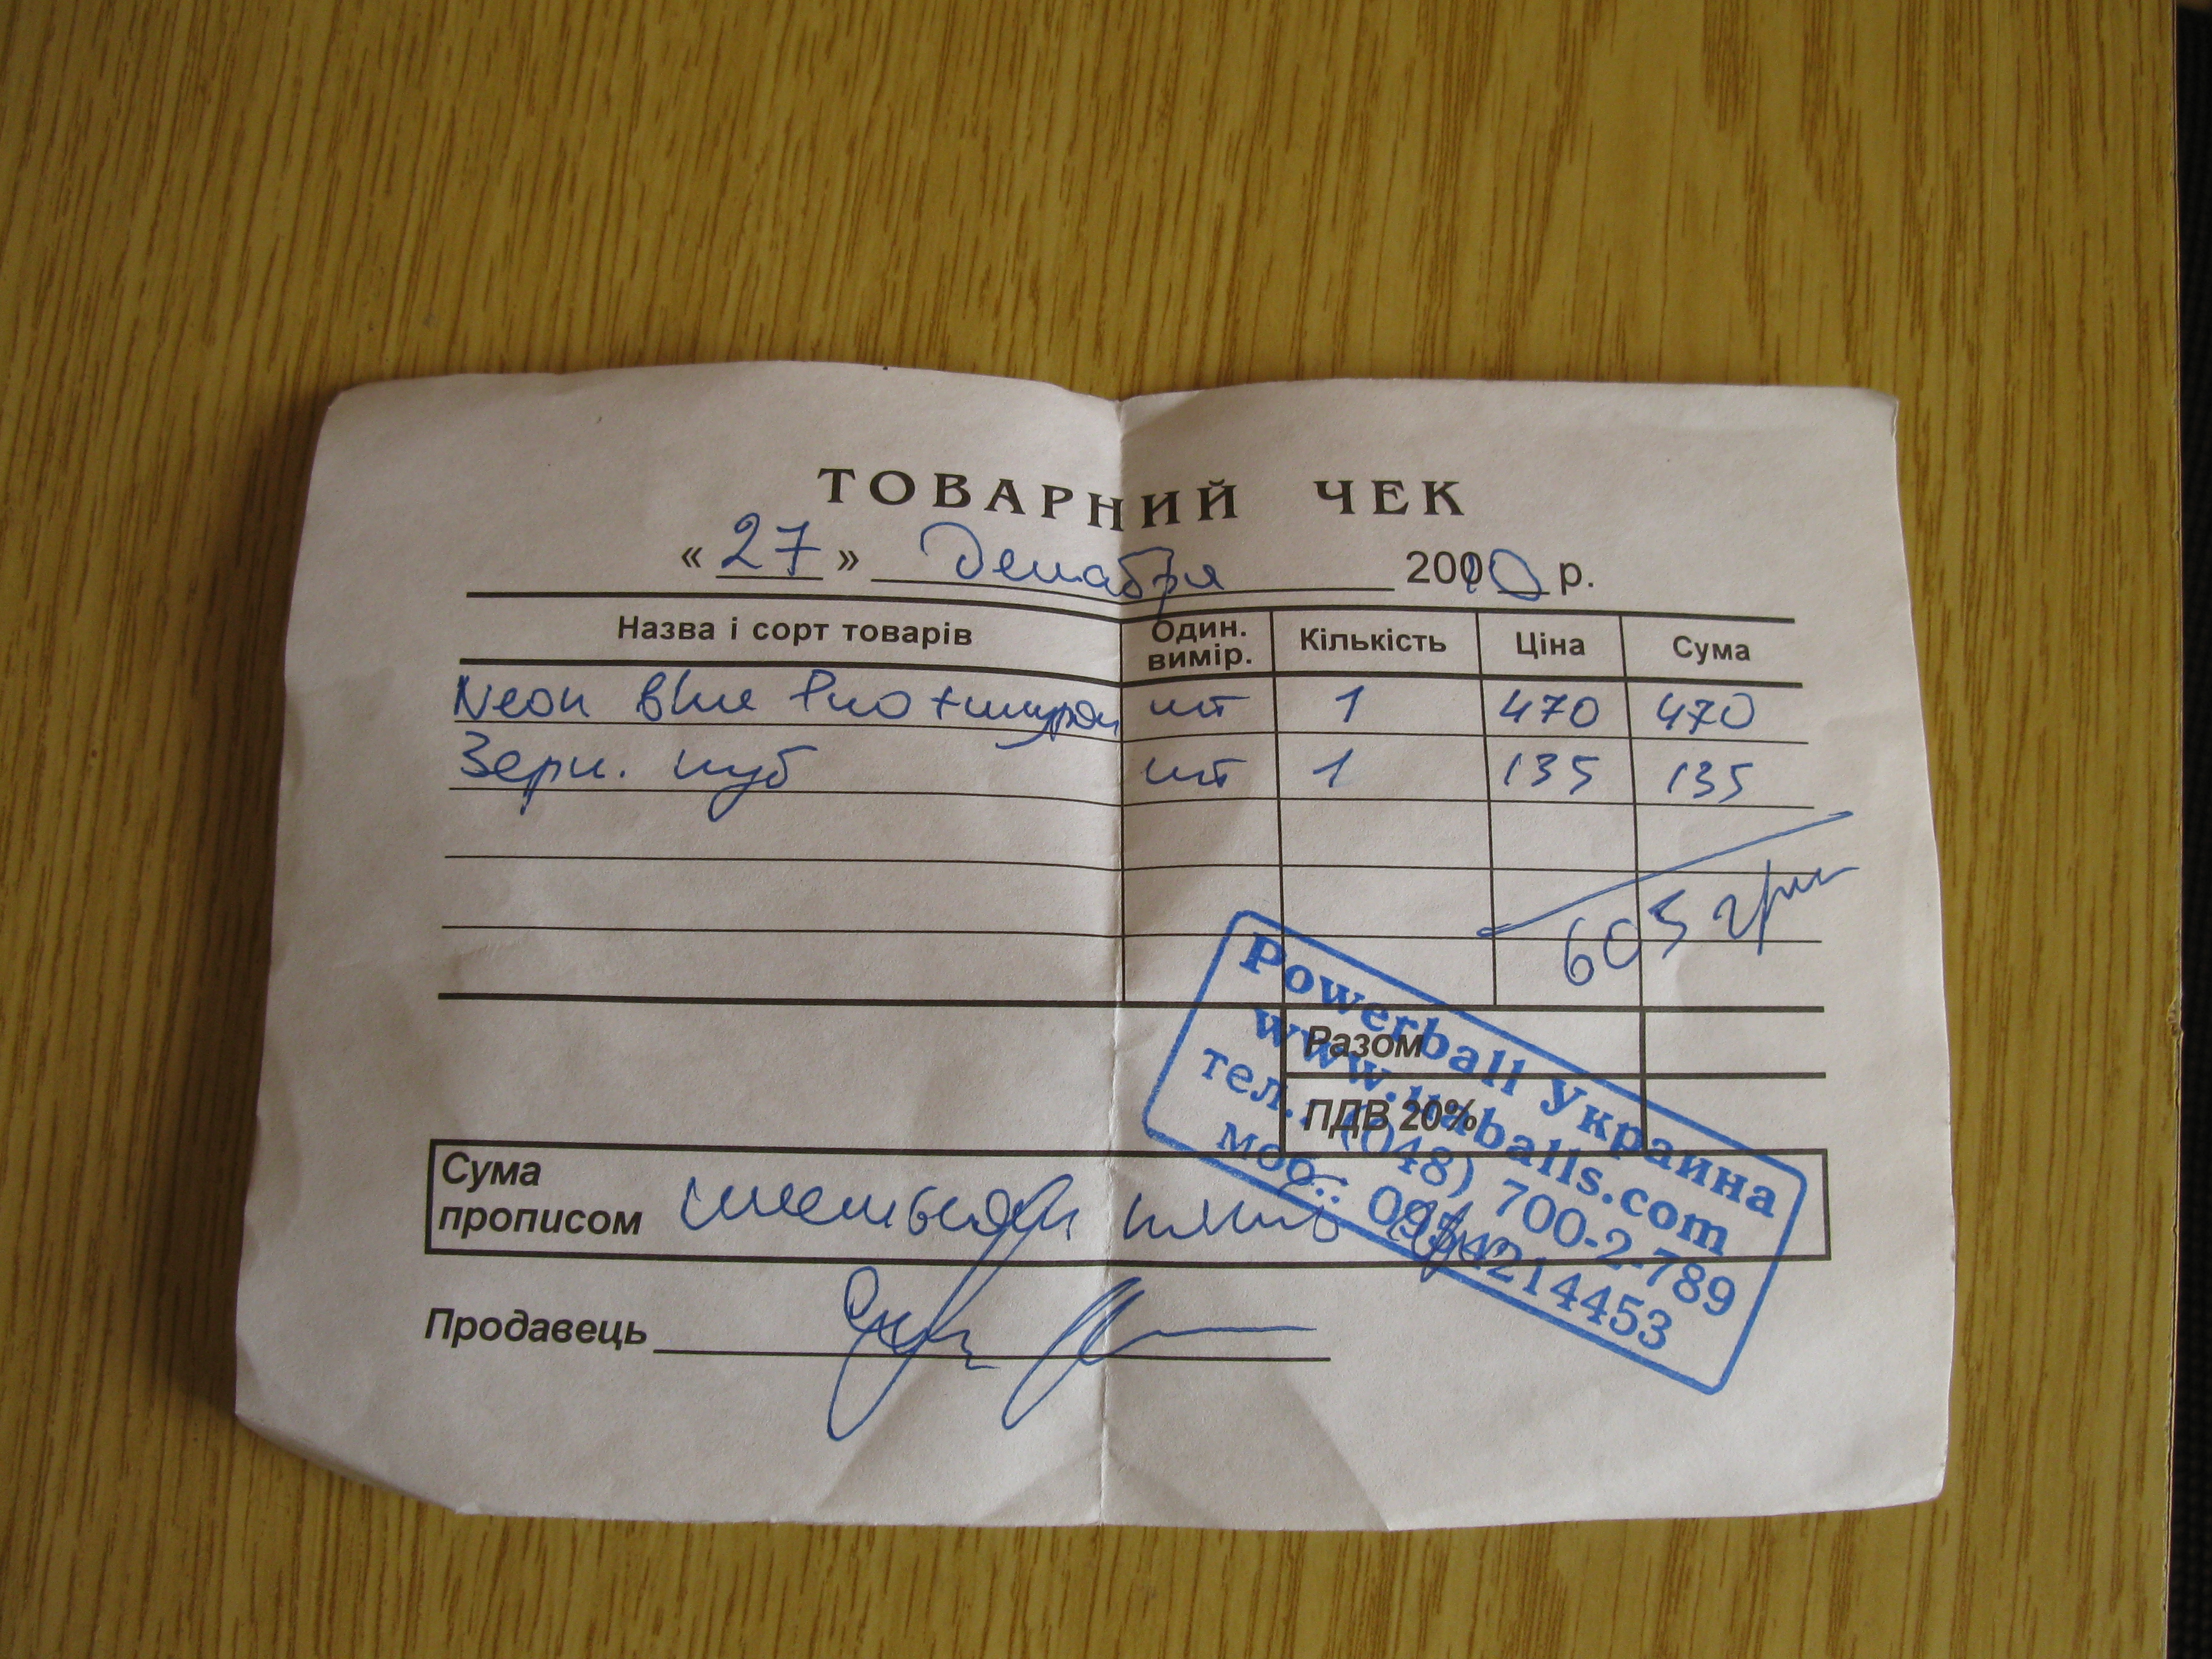 ТОВАРНИЙ ЧЕК
« 27 » Декабря 2010 р.
Назва і сорт товарів Один. вимір. Кількість Ціна Сума
Neon Blue Pro + шнурок шт 1 470 470
Зерк. куб шт 1 135 135
605 грн
Разом
ПДВ 20%
Powerball Украина
www.uaballs.com
тел.: (048) 700-2-789
моб.: 0934214453
Сума прописом шестьсот пять грн
Продавець